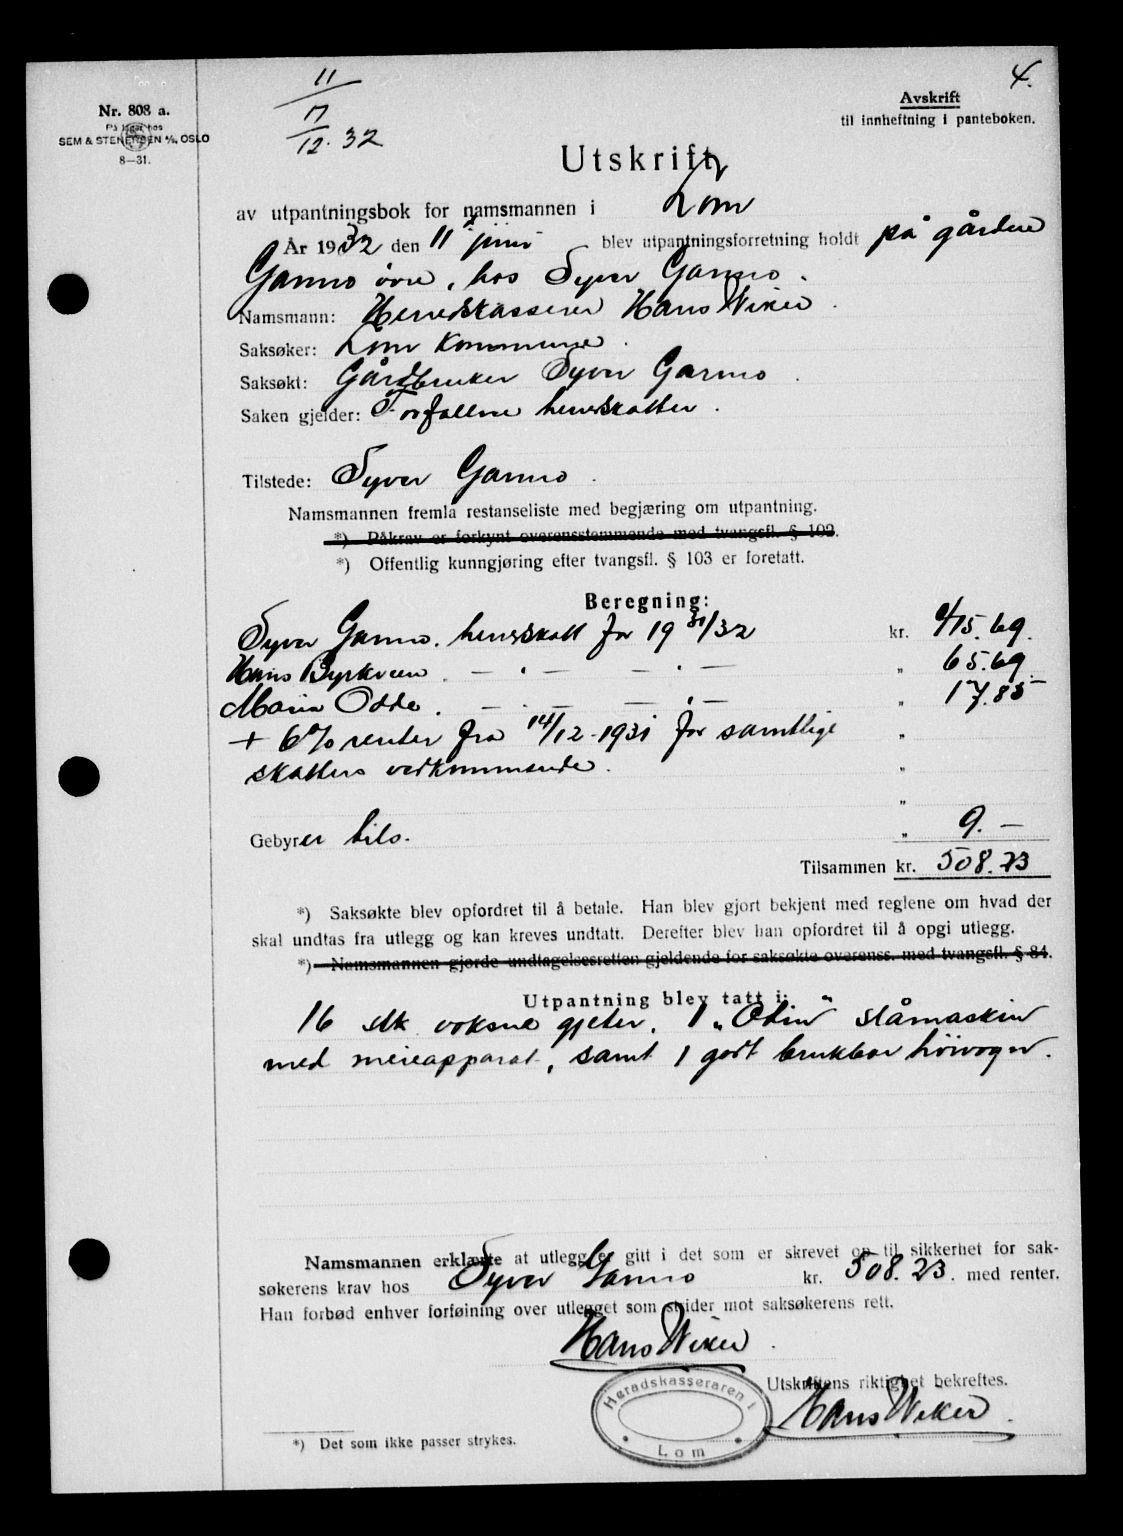 4.
11
17
12. 32
Nr. 808 a.
På lager hos
SEM & STENERSEN A/S, OSLO
8—31.
Avskrift
til innheftning i panteboken.
Utskrift
av utpantningsbok for namsmannen i Lom
År 1932 den 11 juni blev utpantningsforretning holdt på gården
Garmo øvre, hos Syver Garmo.
Namsmann: Herredskasserer Hans Wiker.
Saksøker: Lom Kommune.
Saksøkt: Gårdbruker Syver Garmo.
Saken gjelder: Forfallne herredskatter.
Tilstede: Syver Garmo.
Namsmannen fremla restanseliste med begjæring om utpantning.
*) Påkrav er forkynt overensstemmende med tvangsfl. § 102.
*) Offentlig kunngjøring efter tvangsfl. § 103 er foretatt.
Beregning:
Syver Garmo. herredskatt for 1931/32 kr. 415.69.
Hans Byrkveen. — . — — . — „ 65.69
Maria Odde. — . — — . — „ 17.85
+ 6% renter fra 14/12-1931 for samtlige „
skatters vedkommende. „
„
Gebyrer bils. „ 9. —
Tilsammen kr. 508.23
*) Saksøkte blev opfordret til å betale. Han blev gjort bekjent med reglene om hvad der
skal undtas fra utlegg og kan kreves undtatt. Derefter blev han opfordret til å opgi utlegg.
*) Namsmannen gjorde undtagelsesretten gjeldende for saksøkte overenss. med tvangsfl. § 84.
Utpantning blev tatt i:
16 stk voksne gjeter, 1 „Odin“ slåmaskin
med meieapparat, samt 1 godt brukbar høivogn.
Namsmannen erklærte at utlegg er gitt i det som er skrevet op til sikkerhet for sak-
søkerens krav hos Syver Garmo kr. 508.23. med renter.
Han forbød enhver forføining over utlegget som strider mot saksøkerens rett.
Hans Wiker.
Utskriftens riktighet bekreftes.
Hans Wiker.
Heradskasseraren i
Lom
*) Det som ikke passer strykes.